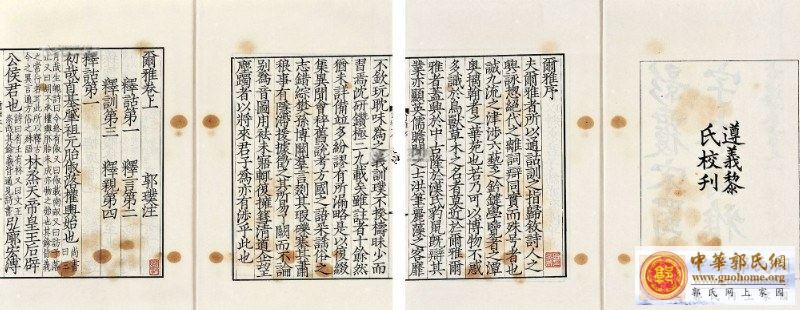 遵義黎
氏校刊
爾雅序
夫爾雅者所以通詁訓之指歸敘詩人之
興詠揔絕代之離詞辯同實而殊号者也
誠九流之津涉六藝之鈐鍵學覽者之潭
奧摛翰者之華苑也若乃可以博物不惑
多識於鳥獸草木之名者莫近於爾雅爾
雅者蓋興於中古隆於漢氏豹鼠既辯其
業亦顯英儒贍聞之士洪筆麗藻之客靡
不欽玩耽味為之義訓璞不揆檮昧少而
習焉沈研鑽極二九載矣雖註者十餘然
猶未詳備並多紛謬有所漏略是以復綴
集異聞會稡舊說考方國之語采謠俗之
志錯綜樊孫博關羣言剟其瑕礫搴其蕭
稂事有隱滯援據徵之其所易了闕而不論
別為音圖用祛未寤輒復擁篲清道企望
塵躅者以將來君子為亦有涉乎此也
爾雅卷上 郭璞注
釋詁第一 釋言第二
釋訓第三 釋親第四
釋詁第一
初哉首基肇祖元胎俶落權輿始也 尚書曰三
林烝天帝皇王后辟
公侯君也 弘廓宏溥
中華郭氏網
www.guohome.org
郭氏网上家园